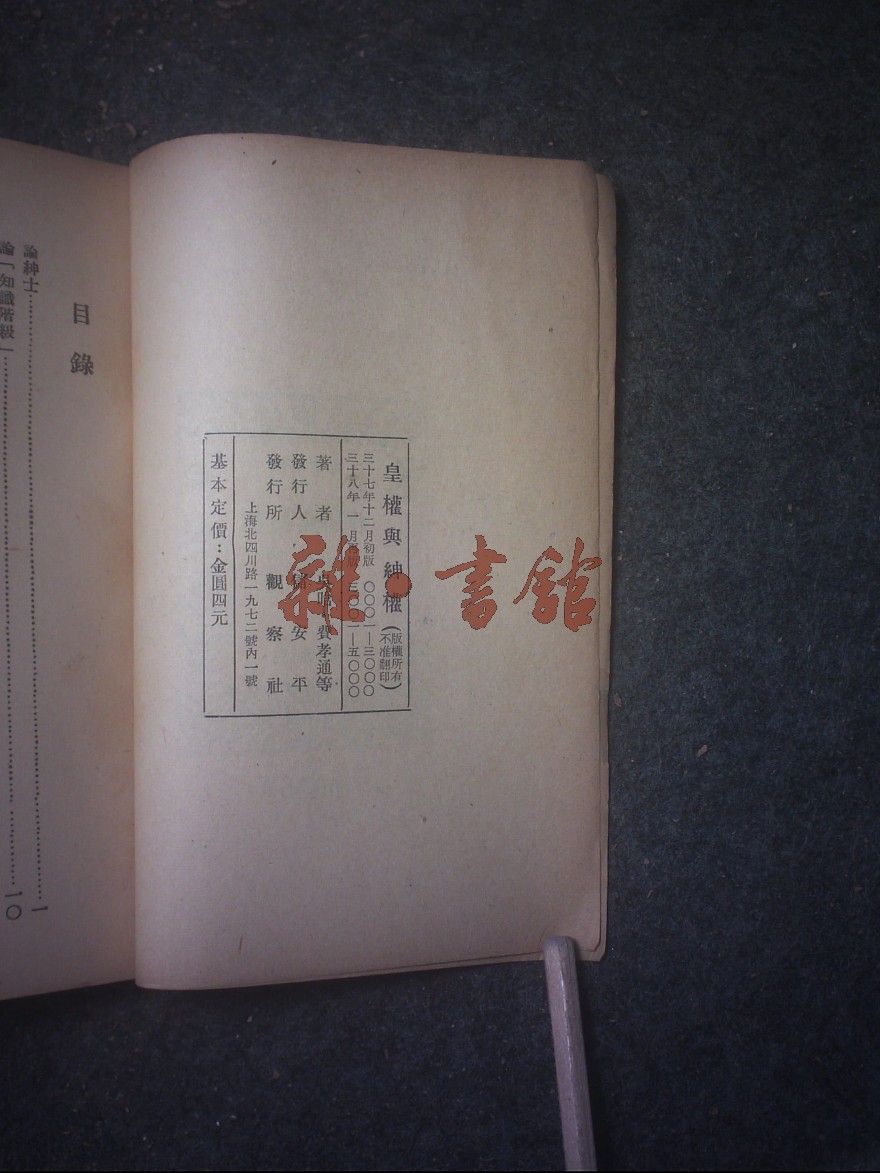 皇權與紳權(版權所有 不准翻印)
三十七年十二月初版 〇〇〇一—三〇〇〇
三十八年 一 月再版 三〇〇一—五〇〇〇
著 者 吳晗 費孝通等
發行人 儲安平
發行所 觀察社
上海北四川路一九七二號內一號
基本定價：金圓四元
雜·書館
目錄
論紳士 一
論「知識階級」 一〇